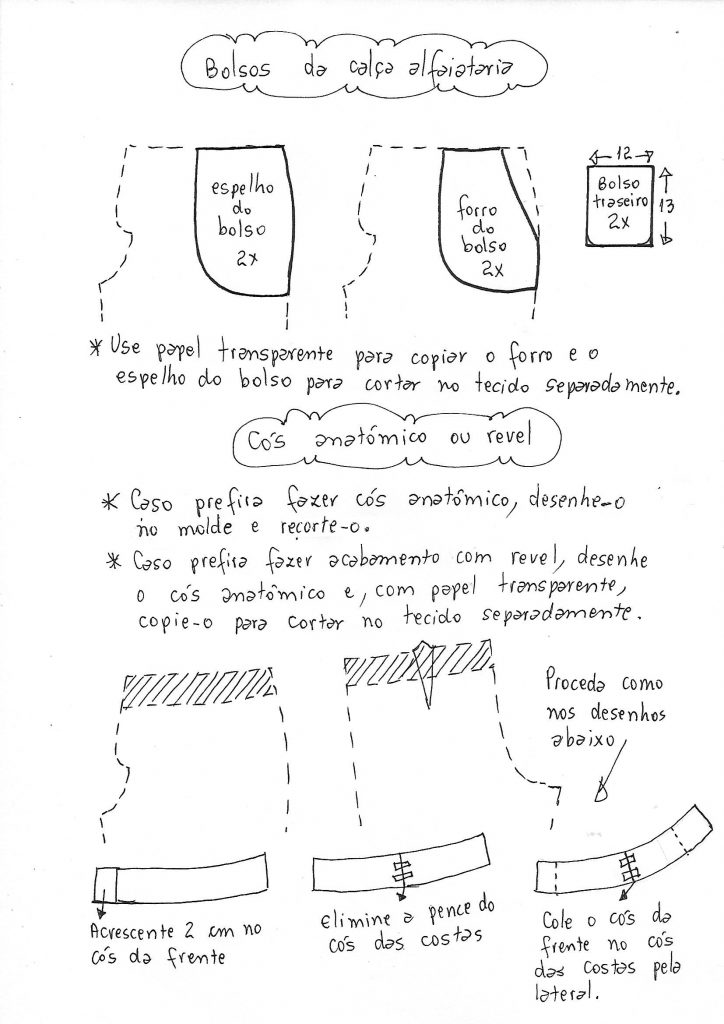 Bolsos da calça alfaiataria
espelho
do
bolso
2x
forro
do
bolso
2x
12
Bolso
traseiro
2x
13
* Use papel transparente para copiar o forro e o
espelho do bolso para cortar no tecido separadamente.
Cós anatómico ou revel
* Caso prefira fazer cós anatômico, desenhe-o
no molde e recorte-o.
* Caso prefira fazer acabamento com revel, desenhe
o cós anatômico e, com papel transparente,
copie-o para cortar no tecido separadamente.
Proceda como
nos desenhos
abaixo
Acrescente 2 cm no
cós da frente
Elimine a pence do
cós das costas
Cole o cós da
frente no cós
das costas pela
lateral.